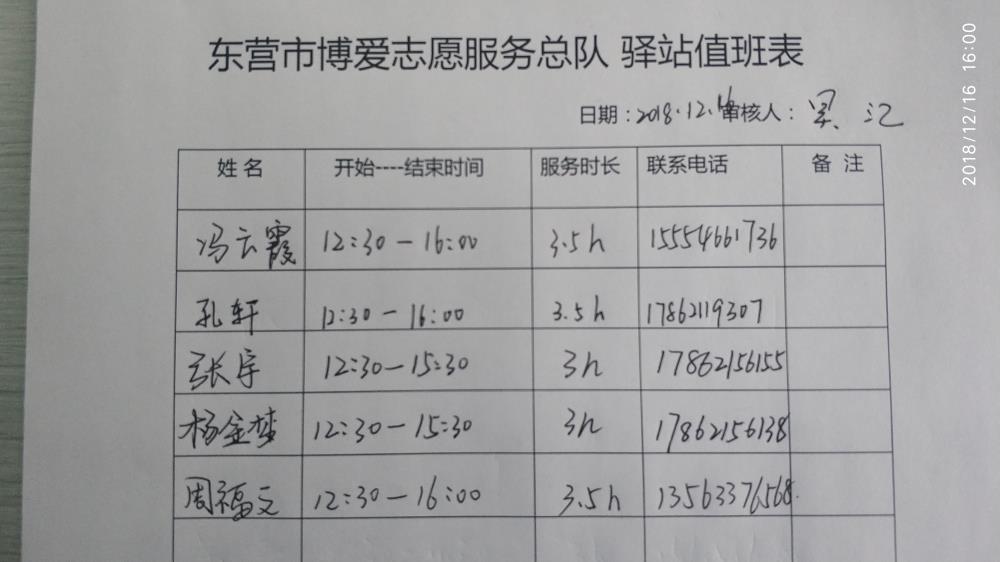 东营市博爱志愿服务总队 驿站值班表
日期:2018.12.16 审核人:
2018/12/16 16:00
姓名 开始----结束时间 服务时长 联系电话 备 注
冯云霞 12:30-16:00 3.5h 15554661736
孔轩 12:30-16:00 3.5h 17862119307
张宇 12:30-15:30 3h 17862156155
杨金梦 12:30-15:30 3h 17862156138
周福文 12:30-16:00 3.5h 13563376568